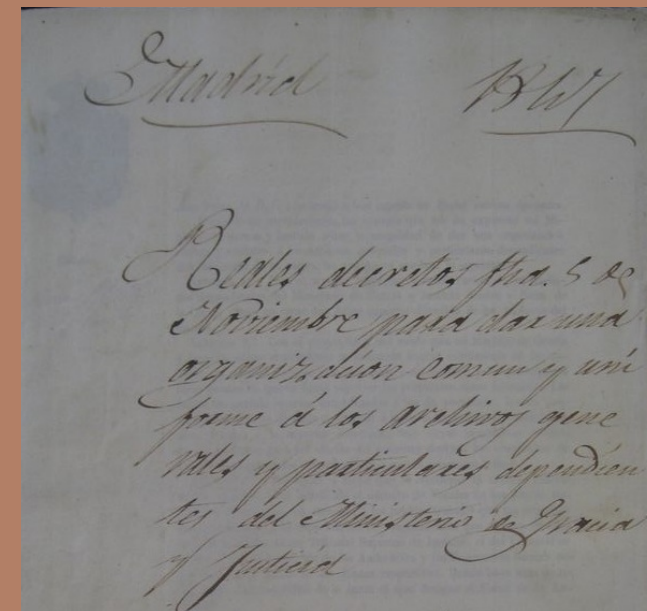 Madrid 1847
Reales decretos fha. 5 de
Noviembre para dar una
organizacion comun y uni
forme á los archivos gene
rales y particulares dependien
tes del Ministerio de Gracia
y Justicia